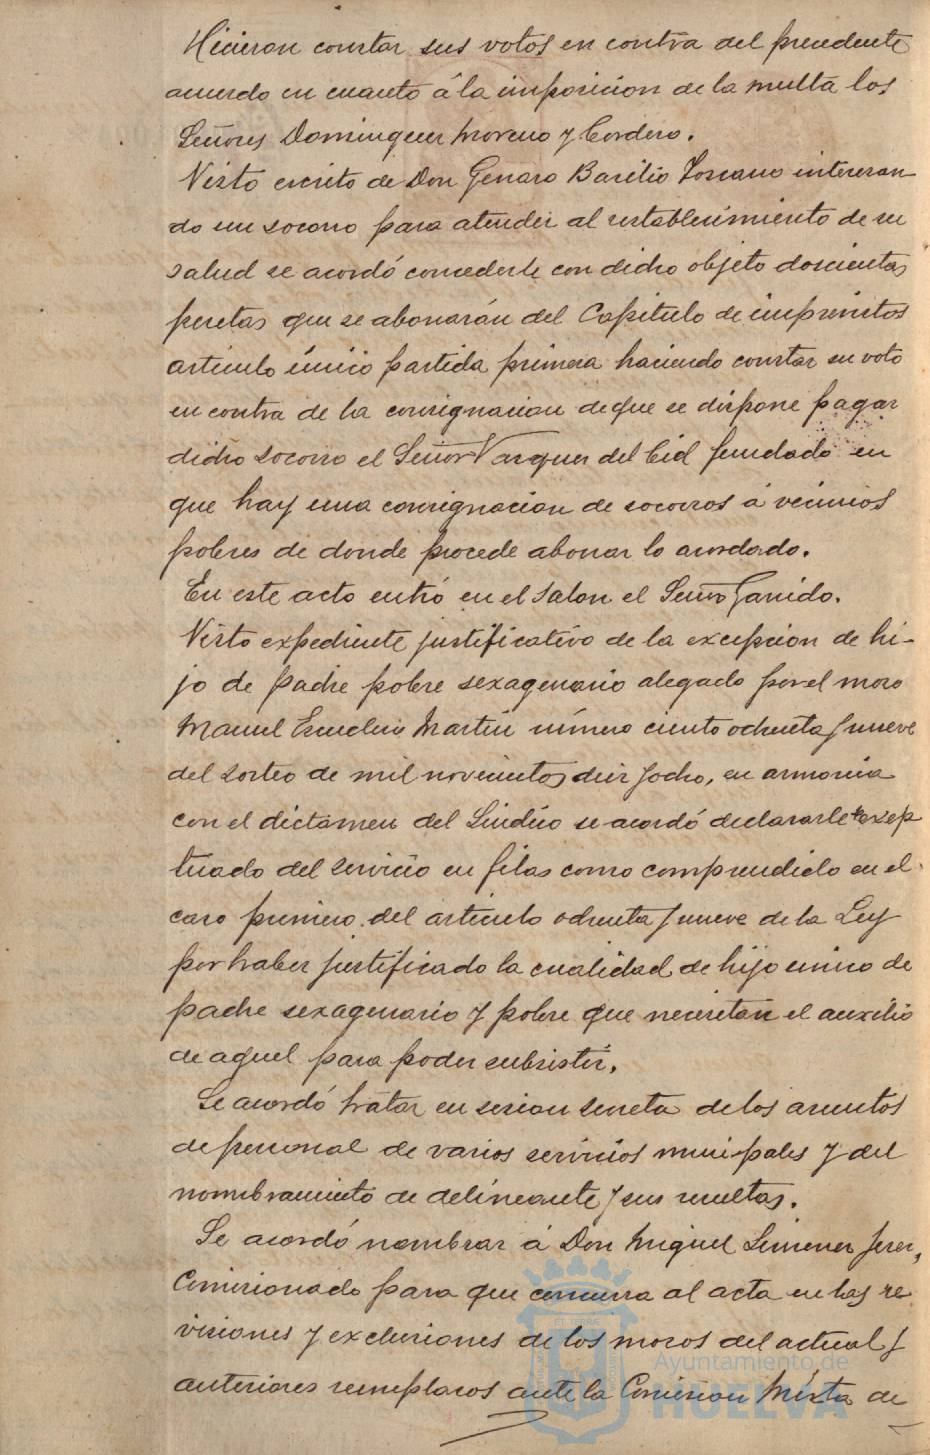 Hicieron constar sus votos en contra del precedente
acuerdo en cuanto á la imposicion de la multa los
Señores Dominguez Moreno y Cordero.
Visto escrito de Don Genaro Basilio Toscano interesan
do un socorro para atender al restablecimiento de su
salud se acordó concederle con dicho objeto doscientas
pesetas que se abonarán del Capitulo de imprevistos
articulo único partida primera haciendo constar su voto
en contra de la consignacion de que se dispone pagar
dicho socorro el Señor Vazquez del Cid fundado en
que hay una consignacion de socorros á vecinos
pobres de donde procede abonar lo acordado.
En este acto entró en el salon el Señor Garrido.
Visto expediente justificativo de la excepcion de hi-
jo de padre pobre sexagenario alegado por el mozo
Manuel Martin número ciento ochenta y nueve
del sorteo de mil novecientos diez y ocho, en armonia
con el dictamen del Sindico se acordó declararle excep
tuado del servicio en filas como comprendido en el
caso primero del articulo ochenta y nueve de la Ley
por haber justificado la cualidad de hijo unico de
padre sexagenario y pobre que necesitan el auxilio
de aquel para poder subsistir.
Se acordó tratar en sesion secreta de los asuntos
de personal de varios servicios municipales y del
nombramiento de delineante y sus resultas.
Se acordó nombrar á Don Miguel Jimenez Jerez,
Comisionado para que concurra al acta en las re
visiones y exclusiones de los mozos del actual y
anteriores reemplazos ante la Comision Mixta de
Ayuntamiento de
HUELVA